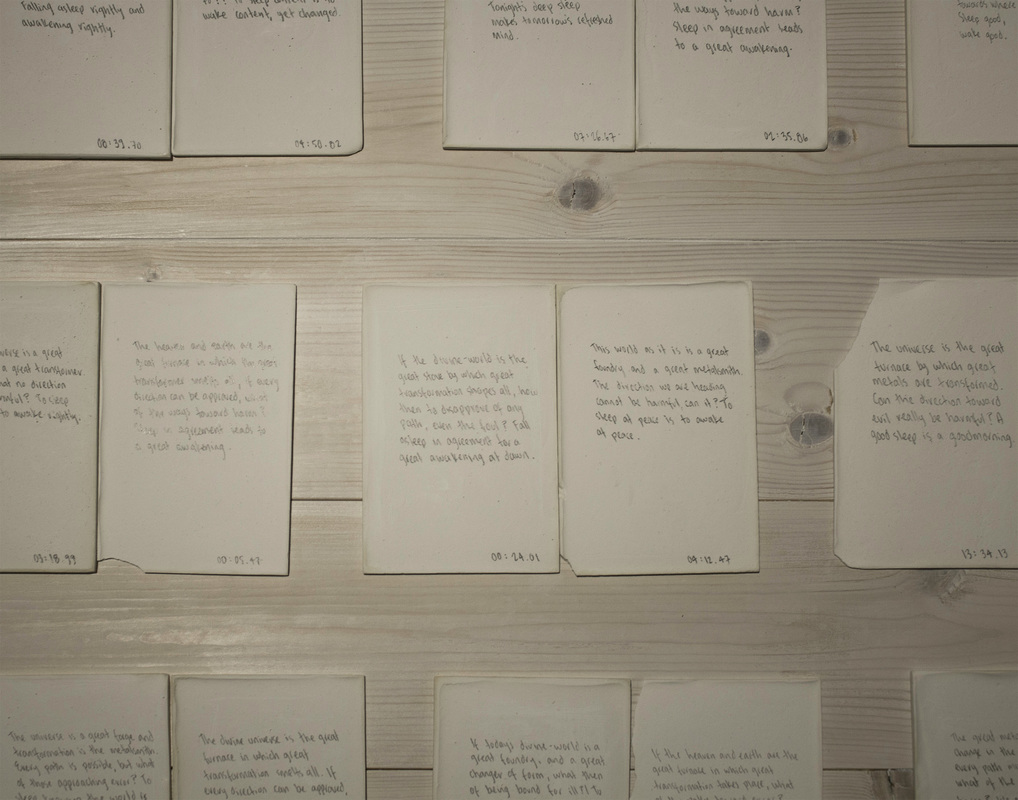 falling asleep rightly and
awakening rightly.
00:39.70
wake content, yet changed.
04:50.02
Tonight's deep sleep
makes tomorrow's refreshed
mind.
the ways toward harm?
Sleep in agreement leads
to a great awakening.
02:35.06
towards where
sleep good,
wake good.
is a great
a great transformer.
no direction
To sleep
to awake rightly.
03:18.99
The heaven and earth are the
great furnace in which the great
transformer smelts all, if every
direction can be applied, what
of the ways toward harm?
Sleep in agreement leads to
a great awakening.
00:05.47
If the divine-world is the
great stove by which great
transformation shapes all, how
then to disapprove of any
path, even the foul? Fall
asleep in agreement for a
great awakening at dawn.
00:24.01
This world as it is is a great
foundry and a great metalsmith.
The direction we are heading
cannot be harmful, can it? To
sleep at peace is to awake
at peace.
04:12.47
The universe is the great
furnace by which great
metals are transformed.
Can this direction toward
evil really be harmful? A
good sleep is a goodmorning.
13:34.13
The universe is a great forge and
transformation is the metalsmith.
Every path is possible, but what
of those approaching error? To
sleep the world is
The divine universe is the great
furnace in which great
transformation smelts all. If
every direction can be applied,
If todays divine-world is a
great foundry, and a great
changer of form, what then
of being bound for ill?! To
If the heaven and earth are the
great furnace in which great
transformation takes place, what
The great
change is the
every path
what of the